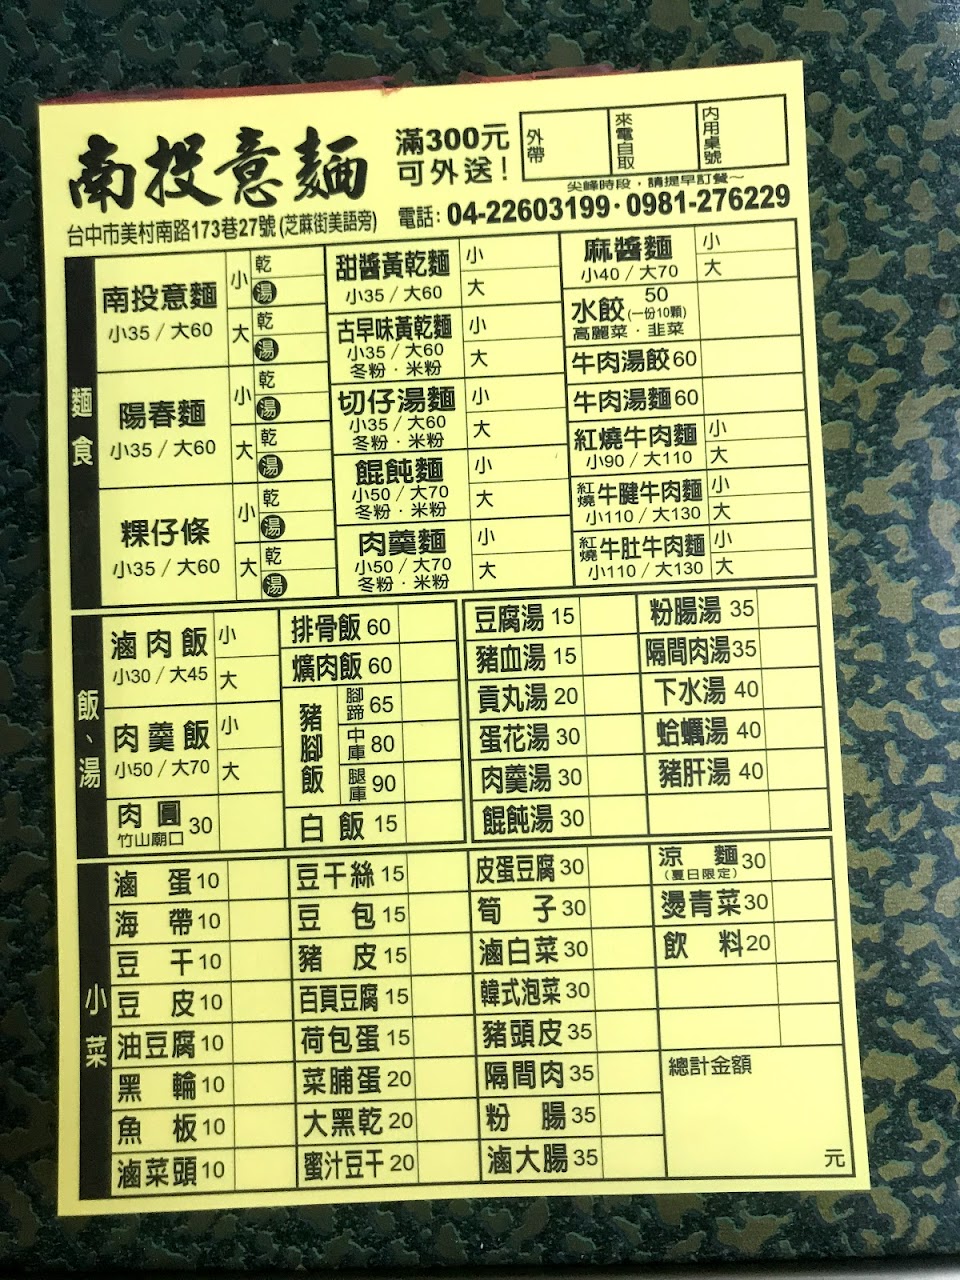 南投意麵
滿300元
可外送！
外帶
來電自取
內用桌號
尖峰時段，請提早訂餐～
台中市美村南路173巷27號(芝麻街美語旁)
電話：04-22603199·0981-276229
麵食
南投意麵
小35／大60
小 乾
湯
大 乾
湯
陽春麵
小35／大60
小 乾
湯
大 乾
湯
粿仔條
小35／大60
小 乾
湯
大 乾
湯
甜醬黃乾麵 小
小35／大60 大
古早味黃乾麵 小
小35／大60 大
冬粉．米粉
切仔湯麵 小
小35／大60 大
冬粉．米粉
餛飩麵 小
小50／大70 大
冬粉．米粉
肉羹麵 小
小50／大70 大
冬粉．米粉
麻醬麵 小
小40／大70 大
水餃 50
(一份10顆)
高麗菜．韭菜
牛肉湯餃60
牛肉湯麵60
紅燒牛肉麵 小
小90／大110 大
紅燒牛腱牛肉麵 小
小110／大130 大
紅燒牛肚牛肉麵 小
小110／大130 大
飯、湯
滷肉飯 小
小30／大45 大
肉羹飯 小
小50／大70 大
肉圓 30
竹山廟口
排骨飯 60
爌肉飯 60
豬腳飯
腳蹄 65
中庫 80
腿庫 90
白飯 15
豆腐湯 15
豬血湯 15
貢丸湯 20
蛋花湯 30
肉羹湯 30
餛飩湯 30
粉腸湯 35
隔間肉湯35
下水湯 40
蛤蠣湯 40
豬肝湯 40
小菜
滷蛋10
海帶10
豆干10
豆皮10
油豆腐10
黑輪10
魚板10
滷菜頭10
豆干絲15
豆包15
豬皮15
百頁豆腐15
荷包蛋15
菜脯蛋20
大黑乾20
蜜汁豆干20
皮蛋豆腐30
筍子30
滷白菜30
韓式泡菜30
豬頭皮35
隔間肉35
粉腸35
滷大腸35
涼麵30
(夏日限定)
燙青菜30
飲料20
總計金額
元